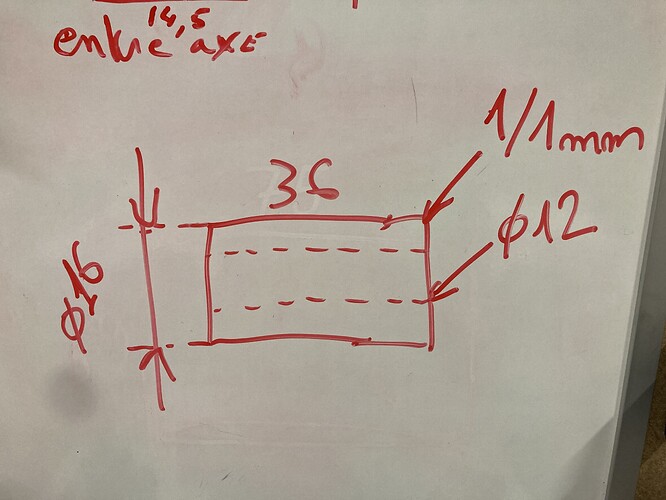 14,5
entre axe
1/1mm
36
φ12
φ16